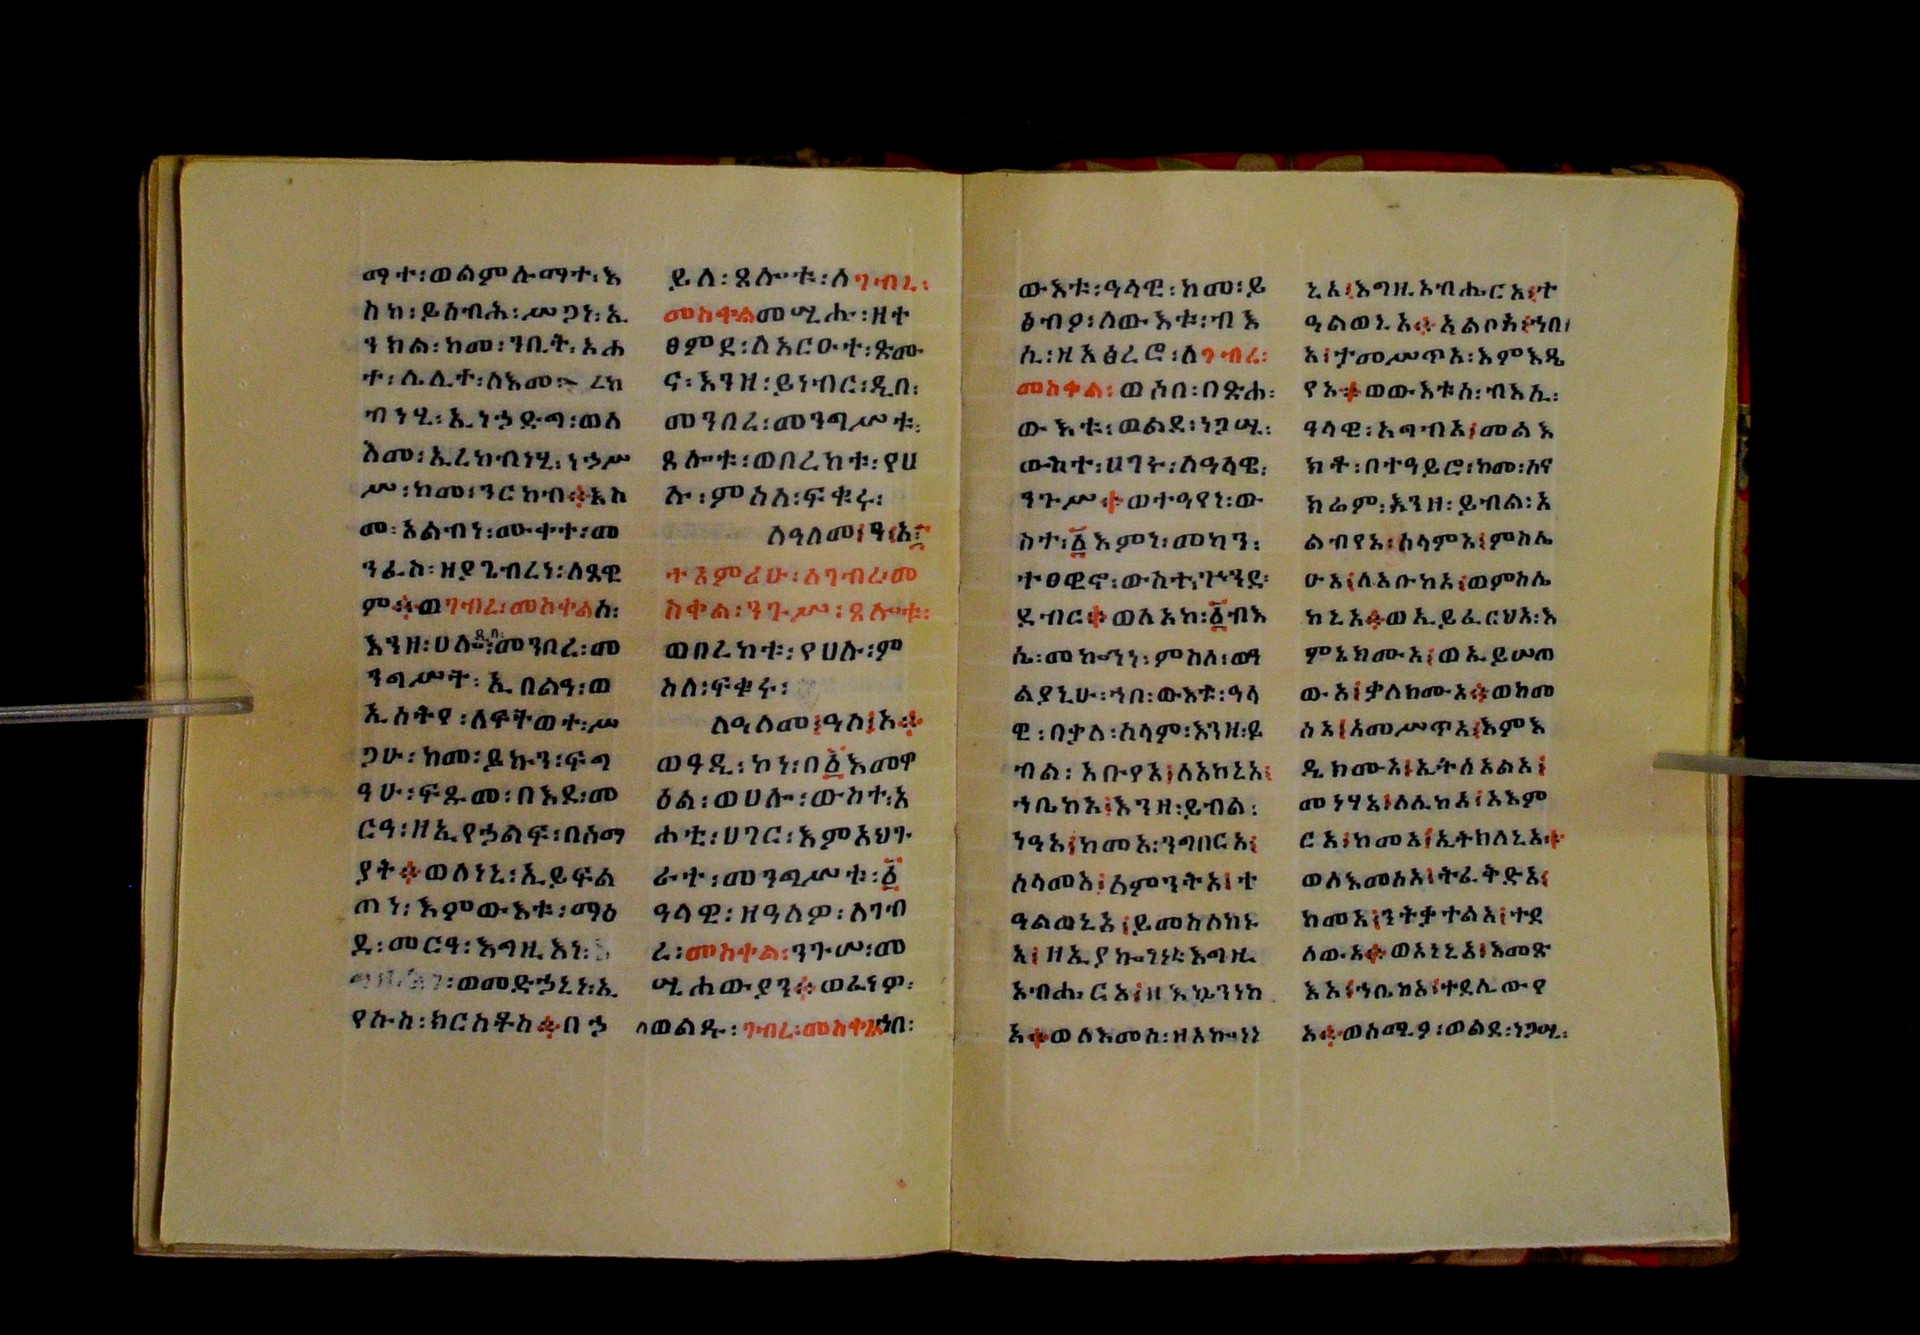 ማተ፡ወልምሉማተ፡እ
ስከ፡ይሰብሕ፡ሥጋነ፡ኢ
ንክል፡ከመ፡ንቢት፡አሐ
ተ፡ሌሊተ፡ለእመ፡ ረከ
ብነሂ፡ኢነኃድግ፡ወለ
እመ፡ኢረከብነሂ፡ነኃሥ
ሥ፡ከመ፡ንርከብ፨እስ
መ፡አልብነ፡ሙቀተ፡መ
ንፈስ፡ዘያጌብረነ፡ለጸዊ
ም፨ወገብረ፡መስቀልሰ፡
እንዘ፡ሀሎ፡ዲበ፡መንበረ፡መ
ንግሥት፡ኢበልዓ፡ወ
ኢሰትየ፡ለፍትወተ፡ሥ
ጋሁ፡ከመ፡ይኩን፡ፍግ
ዓሁ፡ፍጹመ፡በእደ፡መ
ርዓ፡ዘኢየኃልፍ፡በሰማ
ያት፨ወለነኒ፡ኢይፍል
ጠነ፡እምውእቱ፡ማዕ
ደ፡መርዓ፡እግዚእነ፡
ወመድኃኒነ፡ኢ
የሱስ፡ክርስቶስ፨በኃ
ይለ፡ጸሎቱ፡ለገብረ፡
መስቀልመሢሑ፡ዘተ
ፀምደ፡ለአርዑተ፡ጽሙ
ና፡እንዘ፡ይነብር፡ዲበ፡
መንበረ፡መንግሥቱ፡
ጸሎቱ፡ወበረከቱ፡የሀ
ሉ፡ምስለ፡ፍቁሩ፡
ለዓለመ፤ዓ፤አ፤
ተአምሪሁ፡ለገብረ፡መ
ስቀል፡ንጉሥ፡ጸሎቱ፡
ወበረከቱ፡የሀሉ፡ም
ስለ፡ፍቁሩ፡
ለዓለመ፤ዓለ፤አ፨
ወዓዲ፡ኮነ፡በ፩እመዋ
ዕል፡ወሀሎ፡ውስተ፡አ
ሐቲ፡ሀገር፡እምአህጉ
ራተ፡መንግሥቱ፡፩
ዓላዊ፡ዘዓለዎ፡ለገብ
ረ፡መስቀል፡ንጉሥ፡መ
ሢሐውያን፨ወፈነዎ፡
ለወልዱ፡ገብረ፡መስቀልኀበ፡
ውእቱ፡ዓላዊ፡ከመ፡ይ
ፅብዖ፡ለውእቱ፡ብእ
ሲ፡ዘአፅረሮ፡ለገብረ፡
መስቀል፡ወሶበ፡በጽሐ፡
ውእቱ፡ወልደ፡ነጋሢ፡
ውስተ፡ሀገሩ፡ለዓላዊ፡
ንጉሥ፨ወተዓየነ፡ው
ስተ፡፩እምነ፡መካን፡
ተፀዊኖ፡ውስተ፡ጕንደ፡
ደብር፨ወለአከ፡፩ብእ
ሴ፡መኰንነ፡ምስለ፡ወዓ
ልያኒሁ፡ኀበ፡ውእቱ፡ዓላ
ዊ፡በቃለ፡ሰላም፡እንዘ፡ይ
ብል፡አቡየአ፤ለአከኒአ፤
ኀቤከአ፤እንዘ፡ይብል፡
ነዓአ፤ከመአ፡ንግበርአ፤
ሰላመአ፤ለምንትአ፤ተ
ዓልወኒአ፤ይመስለከኑ
አ፤ዘኢያኰንነከ፡እግዚ
አብሔርአ፤ዘአኰንነከ
አ፨ወለእመሰ፡ዘአኰነነ
ኒአ፤እግዚአብሔርአ፤ተ
ዓልወኒአ፨አልቦአ፤ኀበ፡
አ፤ታመሥጥአ፡እምእዴ
የአ፨ወውእቱሰ፡ብእሲ፡
ዓላዊ፡አግብአ፤መልእ
ክቶ፡በተዓይሮ፡ከመ፡አና
ክሬም፡እንዘ፡ይብል፡አ
ልብየአ፡ሰላምአ፤ምስሌ
ሁአ፤ለአቡከአ፤ወምስሌ
ከኒአ፨ወኢይፈርህአ፡እ
ምኔክሙአ፤ወኢይሠጠ
ውአ፤ቃለክሙአ፨ወከመ
ሰአ፤አመሥጥአ፤እምእ
ዴክሙአ፤ኢትሰአልአ፤
መነሃአ፤ለሊከአ፤አእም
ርአ፤ከመአ፤ኢትክለኒአ፨
ወለእመሰአ፤ትፈትድአ፤
ከመአ፤ንትቃተልአ፤ተደ
ለውአ፨ወአነኒአ፤እመጽ
እአ፤ኀቤከአ፤ተደሊውየ
አ፨ወሰሚዖ፡ወልደ፡ነጋሢ፡